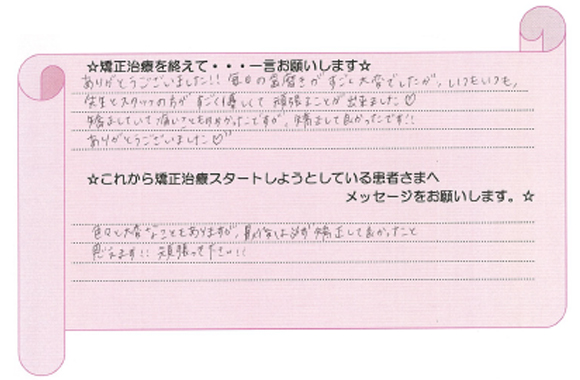 ☆矯正治療を終えて・・・一言お願いします☆
ありがとうございました!! 毎日の歯磨きがすごく大変でしたが、いつもいつも、
先生とスタッフの方がすごく優しくて頑張ることが出来ました♡
矯正していて痛いこともあったですが、矯正して良かったです!!
ありがとうございました♡
☆これから矯正治療スタートしようとしている患者さまへ
メッセージをお願いします。☆
色々と大変なこともありますが、最後は必ず矯正して良かったと
思えます!! 頑張って下さい!!